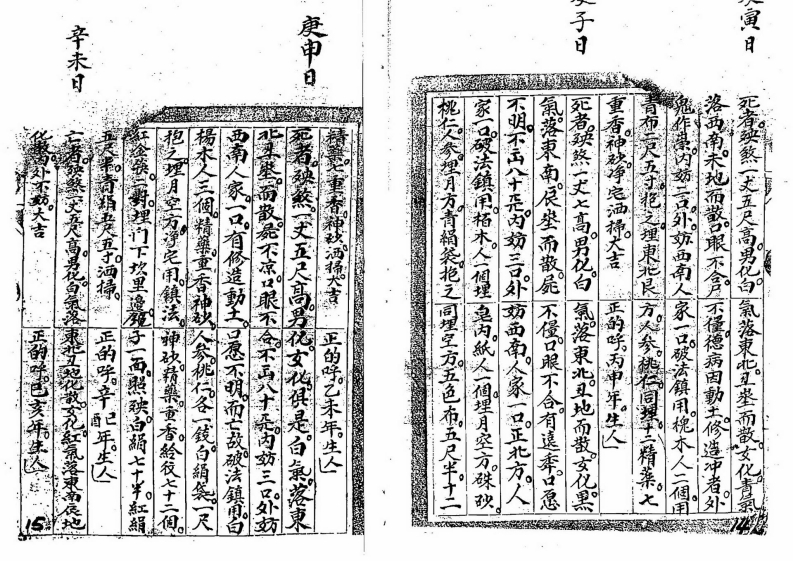 寅日
死者殃煞一丈五尺高男化白氣落東北丑塋而散女化青氣
落西南未地而散口眼不合尸不僵德病因動土修造冲者外
鬼作禁内妨二口外妨西南人家一口破法鎮用槐木人二個用
青布二尺五寸抱之埋東北艮方人参桃仁同埋十二精藥七
重香神砂净宅洒掃大吉正的呼丙申年生人
子日
死者殃煞一丈七高男化白氣落東北丑地而散女化黑
氣落東南辰塋而散屍不僵口眼不合有遠奔口愿
不明不出八十天内妨三口外妨西南人家一口正北方人
家一口破法鎮用栢木人一個埋皂内紙人一個埋月空方硃砂
桃仁人参埋月方青絹袋抱之同埋空方五色布五尺半十二
14
精藥七重香神砂洒掃大吉正的呼乙未年生人
庚申日
死者殃煞一丈五尺高男化女化俱是白氣落東
北丑塋而散屍不凉口眼不合不出八十天内妨三口外妨
西南人家一口有修造動土口愿不明而亡故破法鎮用白
楊木人三個精藥重香神砂人参桃仁各一錢白絹袋一尺
抱之埋月空方净宅用鎮法神砂精藥重香給役七十二個
紅倉筷二對埋门下坎里邊鏡子一面照殃白絹七寸半紅絹
五尺半青絹五尺五寸洒掃正的呼辛巳酉年生人
辛未日
亡者殃煞一丈五尺高男化白氣落東北丑地化散女化紅氣落東南辰地
化散内外不妨大吉正的呼巳亥年生人
15